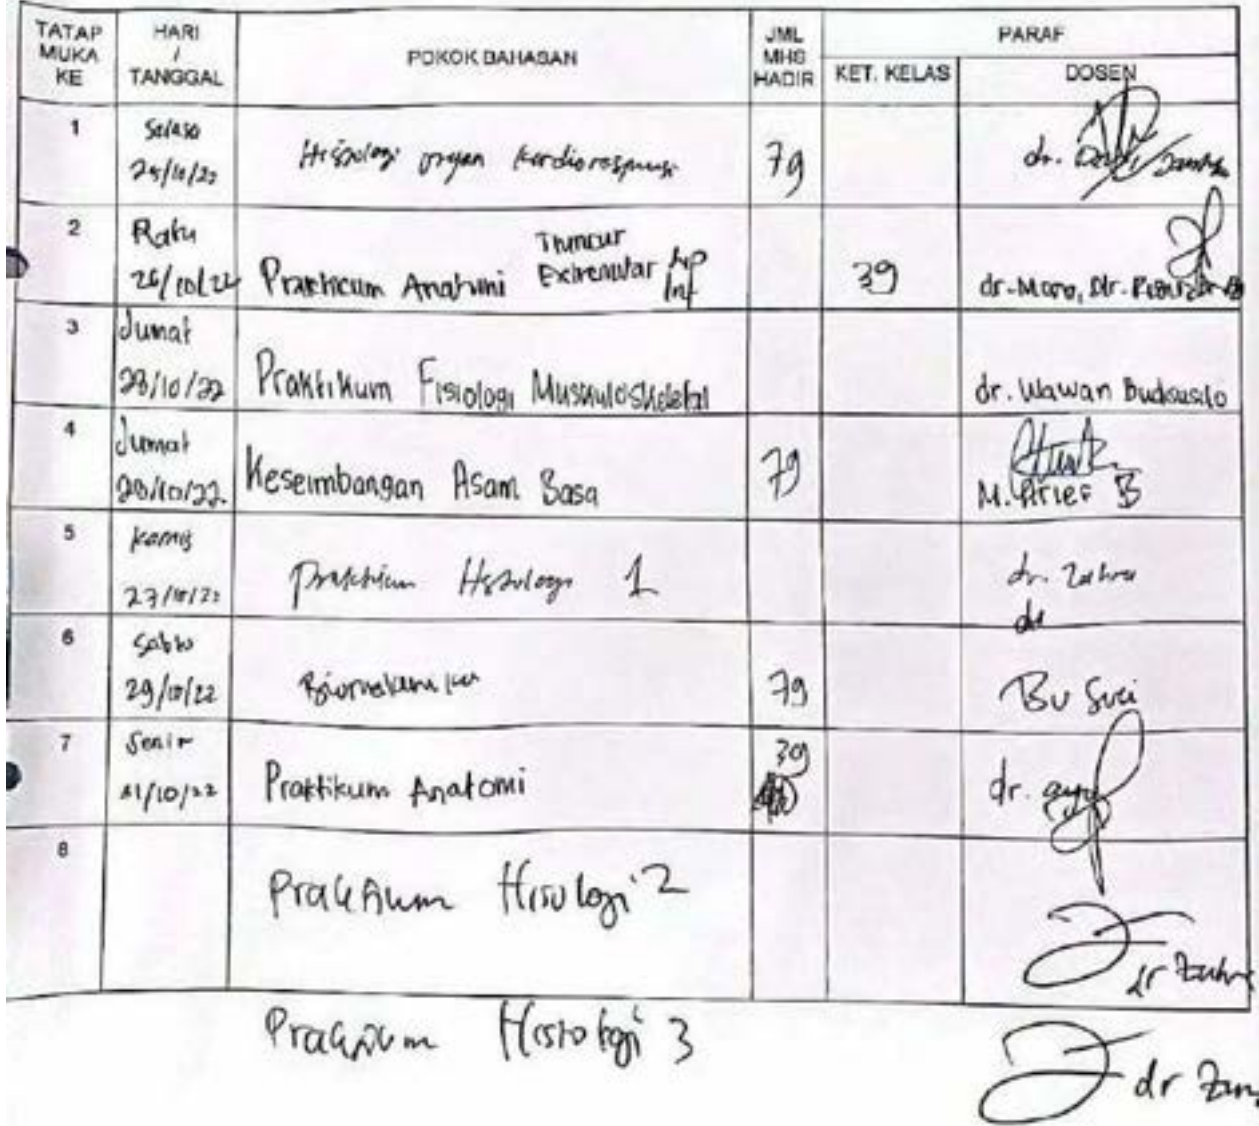 TATAP MUKA KE
HARI / TANGGAL
POKOK BAHASAN
JML MHS HADIR
PARAF
KET. KELAS
DOSEN
1
Selasa
25/10/22
Histologi organ kardiorespirasi
79
dr.
2
Rabu
26/10/22
Praktikum Anatomi
Truncus
Extremitas
Inf
39
dr.
3
Jumat
28/10/22
Praktikum Fisiologi Muskuloskeletal
dr. Wawan Budisusilo
4
Jumat
28/10/22.
Keseimbangan Asam Basa
79
M. Arief B
5
Kamis
27/10/22
Praktikum Histologi 1
dr. Zahra
6
Sabtu
29/10/22
Biomekanika
79
Bu Suci
7
Senin
31/10/22
Praktikum Anatomi
39
dr.
8
Praktikum Histologi 2
dr
Praktikum Histologi 3
dr